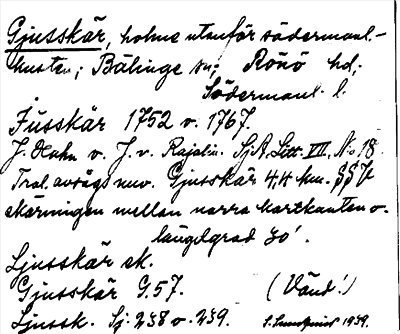 Gjusskär, holme utanför södermanl.-
kusten; Bälinge sn; Rönö hd;
Södermanl. l.
Jusskär 1752 o. 1767.
J. Hahn o. J. v. Rajalin. SjA. Litt. VIII, No 18.
Trol. avsågs nuv. Gjusskär 4,4 km.
skärningen mellan norra kartkanten o.
längdgrad 30'.
Ljusskär ek.
Gjusskär G.57. (Vänd!)
Ljussk. Sj. 238 o. 239. 1939.